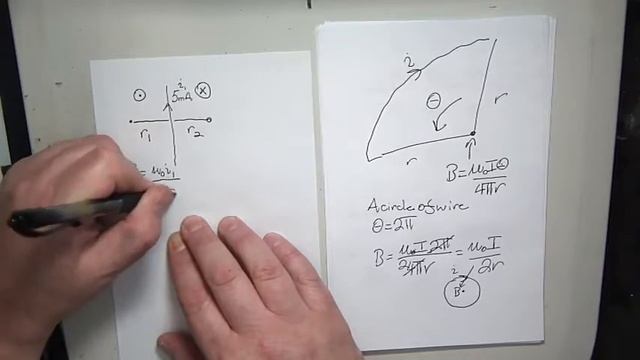 i₁
5mA
r₁ r₂
= μ₀i₁
i
θ
r
r
B = μ₀Iθ
4πr
A circle of wire
θ = 2π
B = μ₀I2π = μ₀I
24πr 2r
i
B